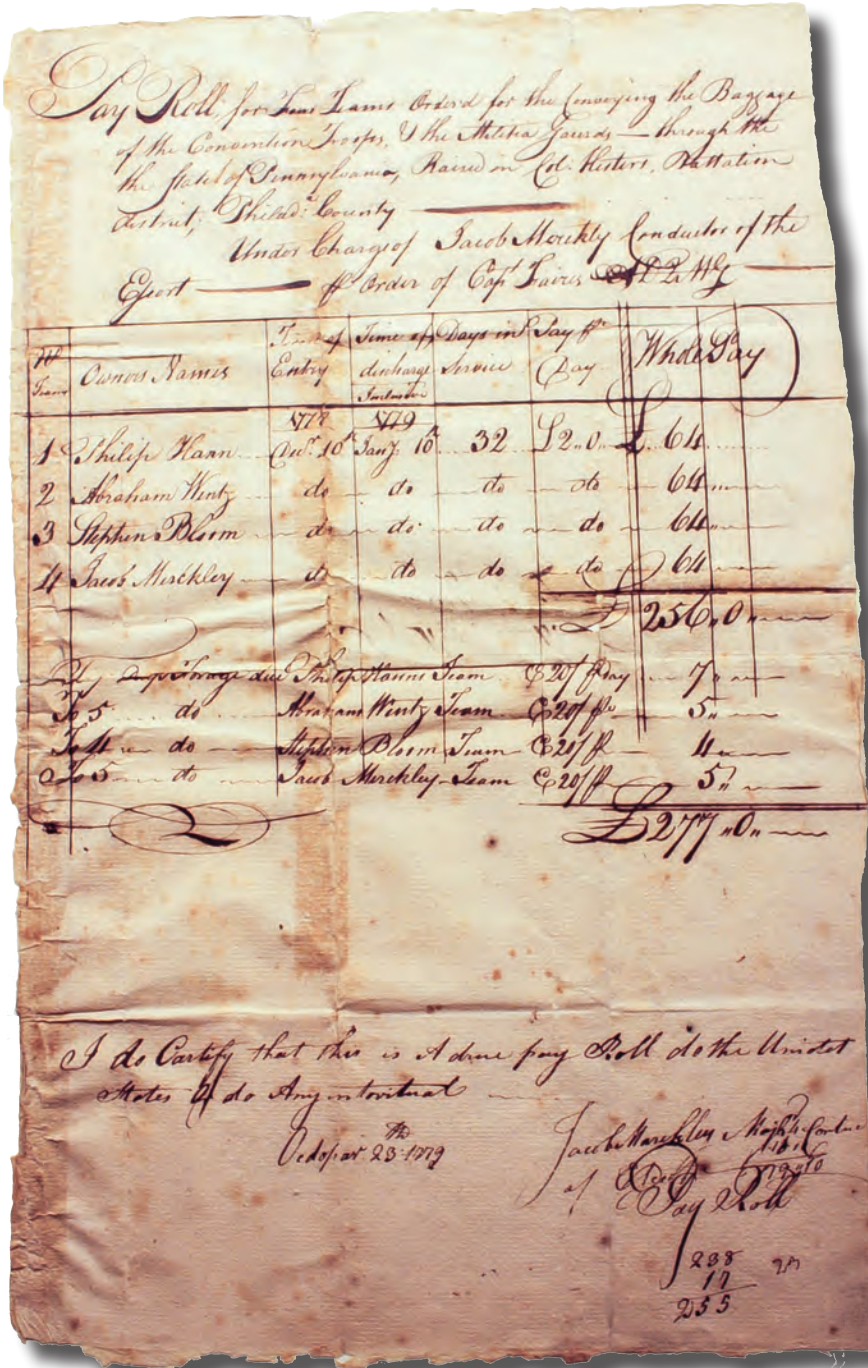 Pay Roll, for Four Teams Orderd for the Conveying the Baggage
of the Convention Troops, & the Militia Gaurds — through the
the State of Pennsylvania, Raised in Col. Hesters, Battation
district, Philad.ᵃ County
Under Charge of Jacob Merckly Conductor of the
Escort — ⅌ Order of Capᵗ
Nº Teams Owners Names Time of Entry Time of discharge Inclusive Days in Service Pay ⅌ Day Whole Pay
1778 1779
1 Philip Hann Decʳ. 10ᵗʰ Janʸ. 10ᵗʰ 32 £2„0„ £ 64
2 Abraham Wentz do do do do 64
3 Stephen Bloom do do do do 64
4 Jacob Merckley do do do do 64
£ 256„0„
Forage due Philip Hanns Team @ 20/ ⅌ Day 7„
To 5 do Abraham Wentz Team @ 20/ ⅌ 5„
To 4 do Stephen Bloom Team @ 20/ ⅌ 4„
To 5 do Jacob Merckley Team @ 20/ ⅌ 5„
£277„0„
I do Cartify that this is A drue pay Roll do the Unidet
States & do Any intovitual
Ocdopar 23ᵗʰ 1779
Jacob Marckley
of
Pay Roll
238
17
255